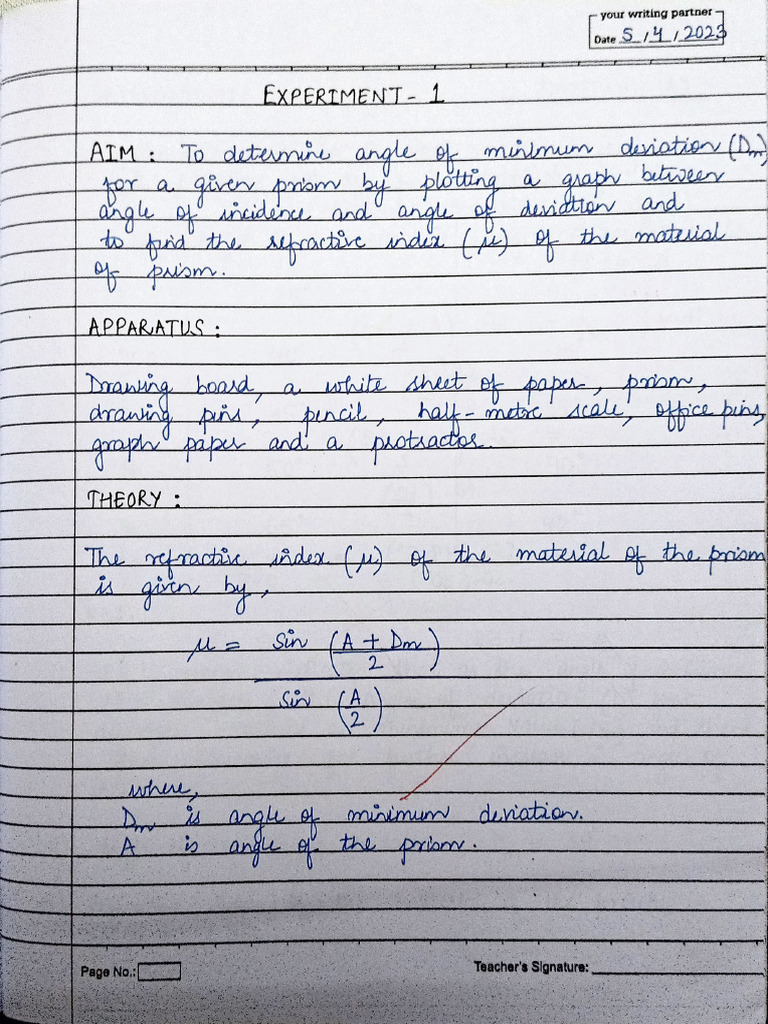 your writing partner
Date 5 / 4 / 2023
EXPERIMENT - 1
AIM : To determine angle of minimum deviation (Dm)
for a given prism by plotting a graph between
angle of incidence and angle of deviation and
to find the refractive index (μ) of the material
of prism.
APPARATUS :
Drawing board, a white sheet of paper, prism,
drawing pins, pencil, half-metre scale, office pins,
graph paper and a protractor.
THEORY :
The refractive index (μ) of the material of the prism
is given by,
μ = Sin (A + Dm / 2)
Sin (A / 2)
where,
Dm is angle of minimum deviation.
A is angle of the prism.
Page No.:
Teacher's Signature: